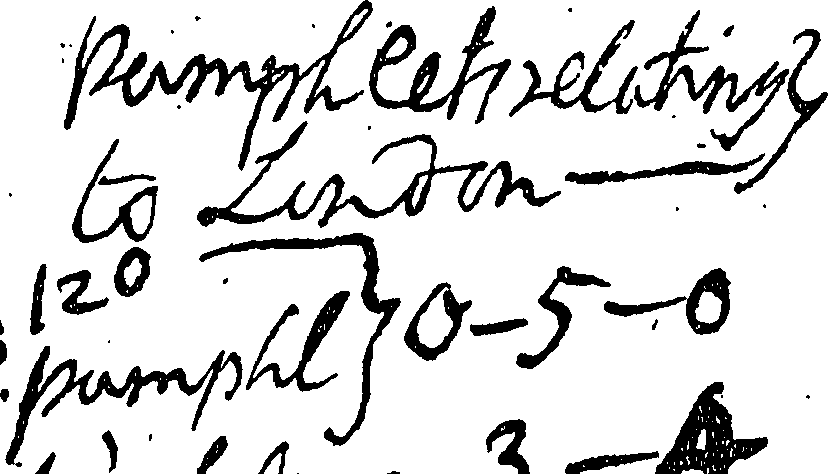 Pamphlets relating
to London —
12⁰
pamphl } 0-5-0
3 —